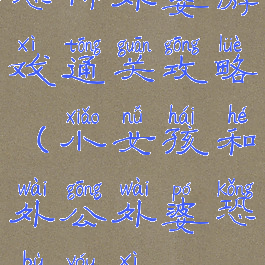 外婆游
xì tōng guān gōng lüè
戏通关攻略
xiǎo nǚ hái hé
(小女孩和
wài gōng wài pó kǒng
外公外婆恐
bù yóu xì